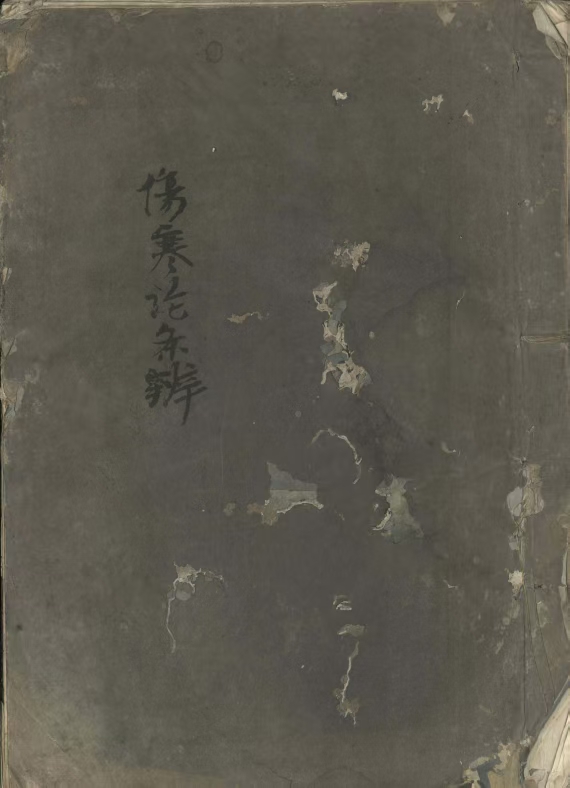 傷寒论条辨